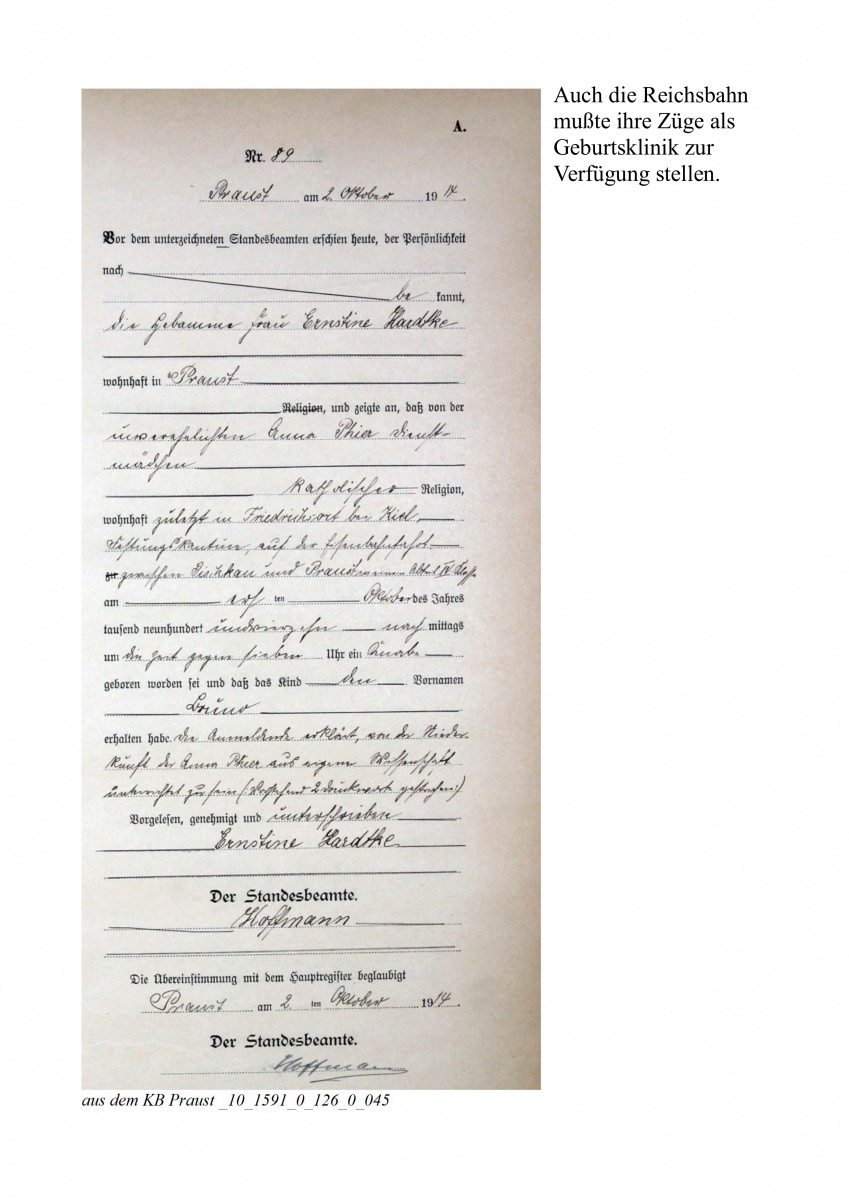 Auch die Reichsbahn
mußte ihre Züge als
Geburtsklinik zur
Verfügung stellen.
A.
Nr. 89
Praust am 2. Oktober 1914.
Vor dem unterzeichneten Standesbeamten erschien heute, der Persönlichkeit
nach
be kannt,
die Hebamme Frau Ernstine Hardtke
wohnhaft in Praust
Religion, und zeigte an, daß von der
unverehelichten Anna Phier Dienst-
mädchen
katholischer Religion,
wohnhaft zuletzt in Friedrichsort bei Kiel,
Festungskantine, auf der Eisenbahnfahrt
zu zwischen und Praust Abteil IV
am ersten Oktober des Jahres
tausend neunhundert undvierzehn nach mittags
um die Zeit gegen sieben Uhr ein Knabe
geboren worden sei und daß das Kind den Vornamen
Bruno
erhalten habe. Die Anmeldende erklärt, von der Nieder-
kunft der Anna Phier aus eigener Wissenschaft
unterrichtet zu sein (Vorstehend 2 Druckworte gestrichen.)
Vorgelesen, genehmigt und unterschrieben
Ernstine Hardtke
Der Standesbeamte.
Hoffmann
Die Übereinstimmung mit dem Hauptregister beglaubigt
Praust am 2. ten Oktober 1914.
Der Standesbeamte.
Hoffmann
aus dem KB Praust _10_1591_0_126_0_045